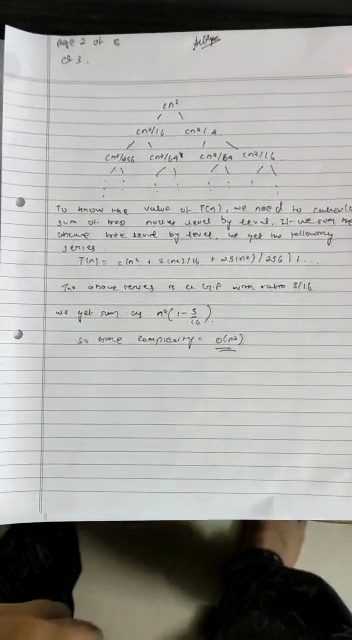 Page 2 of 5
Q3.
cn²
cn²/16 cn²/4
cn²/256 cn²/64 cn²/64 cn²/16
To know the value of T(n), we need to
sum of tree nodes level by level. If we sum the
above tree level by level, we get the following
series
T(n) = c(n² + 5(n²)/16 + 25(n²)/256) + ...
The above series is a G.P with ratio 5/16
we get sum as n²(1-5/16)
so time complexity = O(n²)